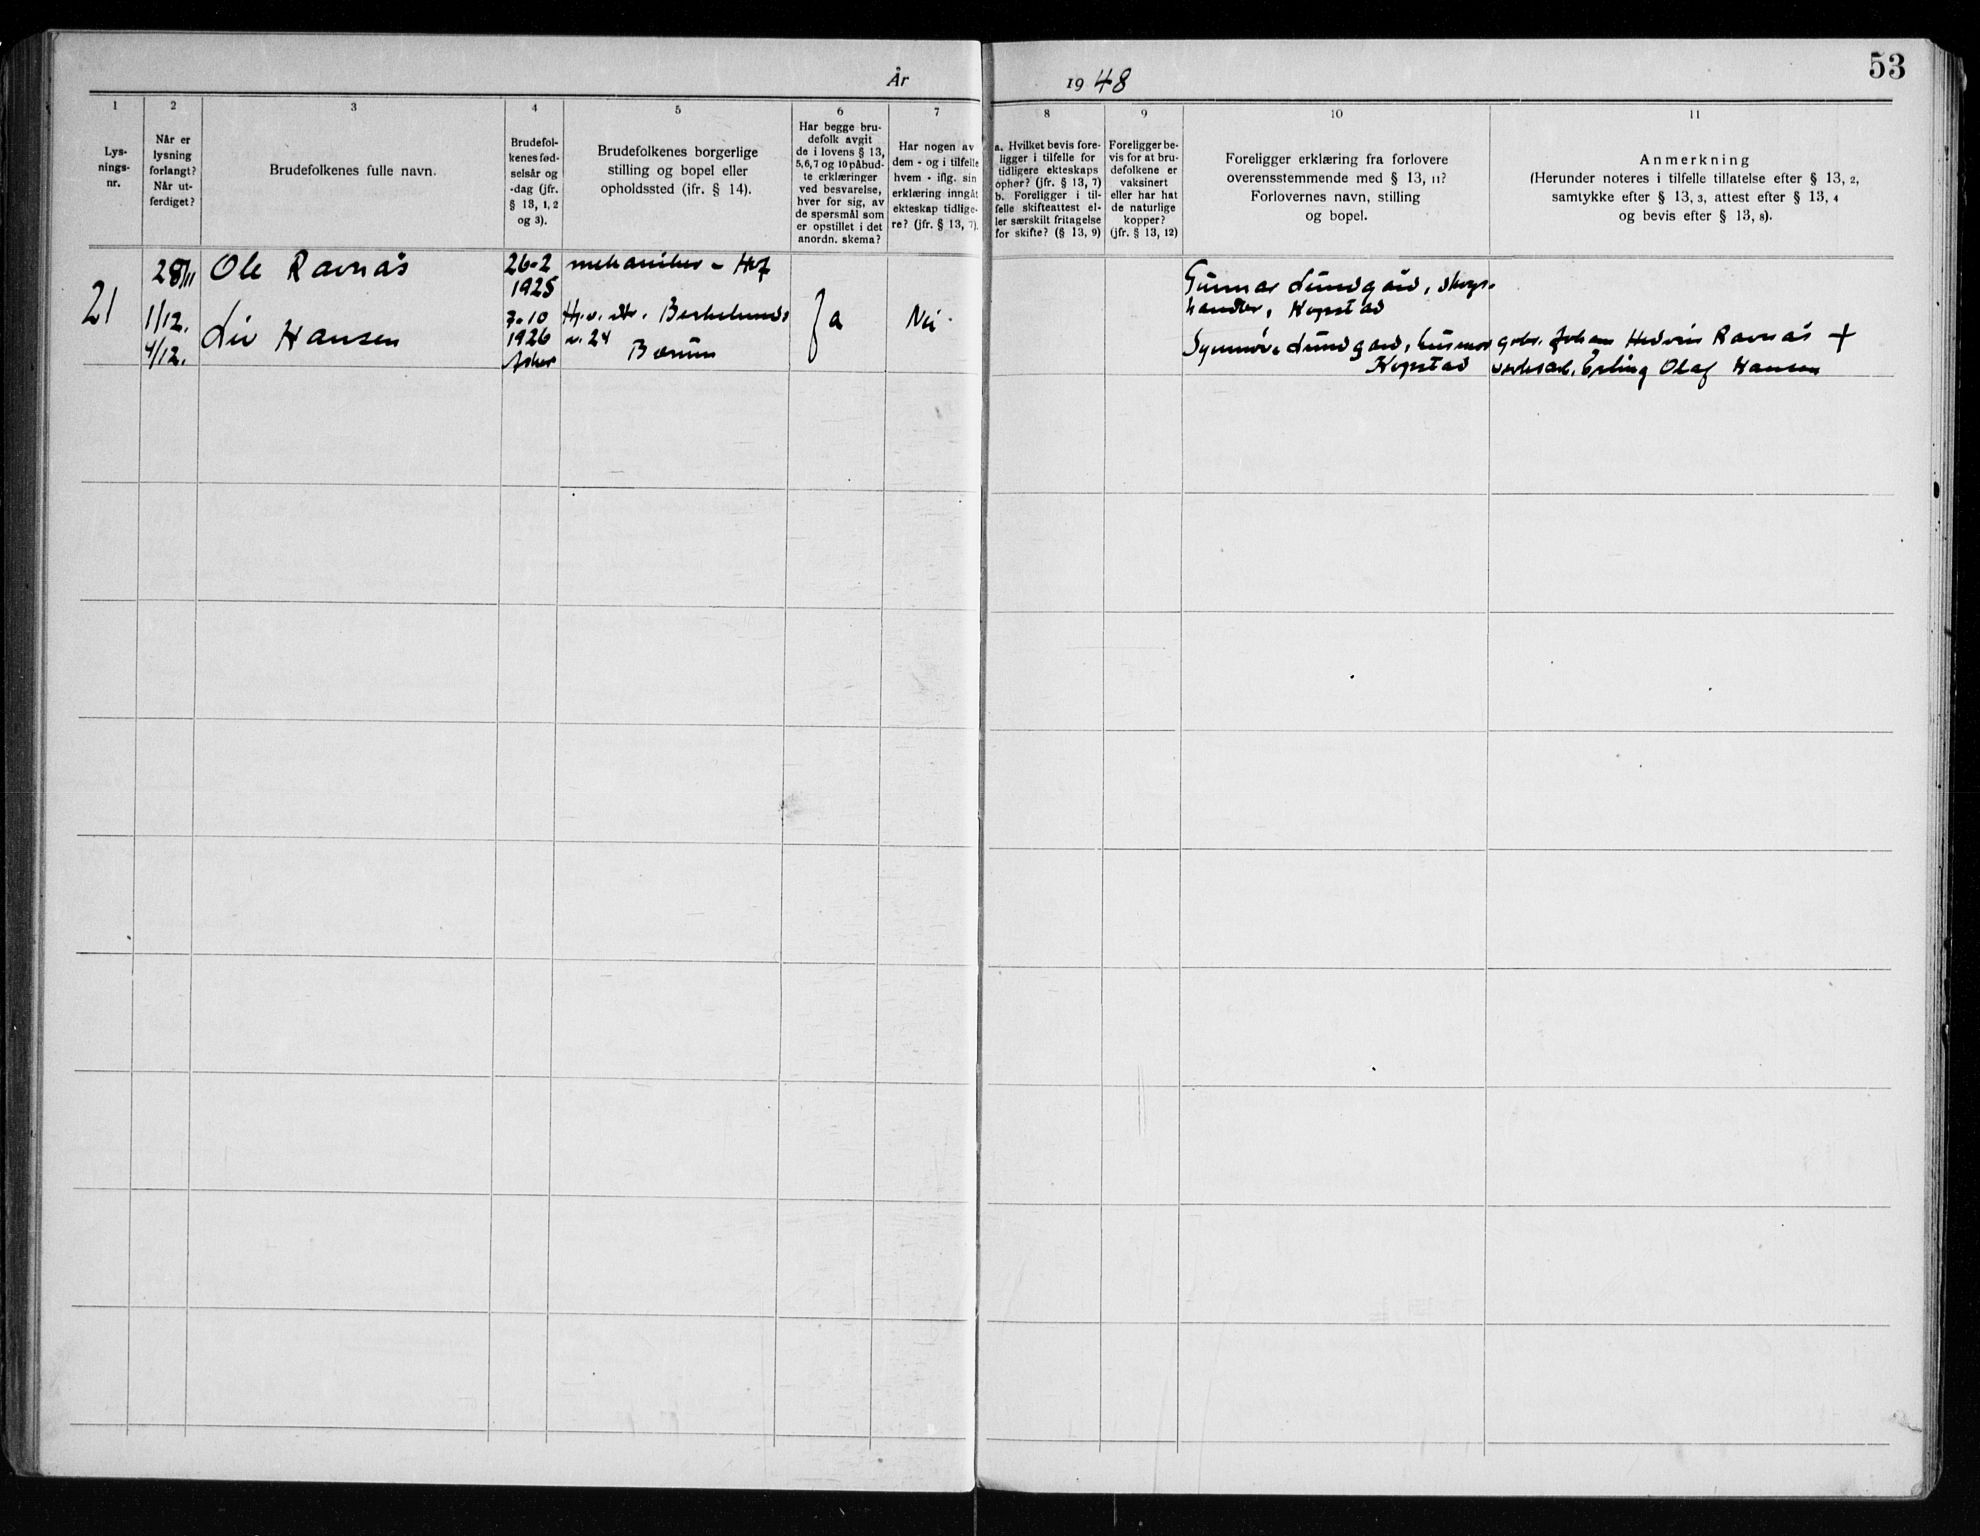 År 1948
53
1
Lys-
nings-
nr.
2
Når er
lysning
forlangt?
Når ut-
ferdiget?
3
Brudefolkenes fulle navn.
4
Brudefol-
kenes fød-
selsår og
-dag (jfr.
§ 13, 1, 2
og 3).
5
Brudefolkenes borgerlige
stilling og bopel eller
opholdssted (jfr. § 14).
6
Har begge bru-
defolk avgit
de i lovens § 13,
5,6,7 og 10 påbud-
te erklæringer
ved besvarelse,
hver for sig, av
de spørsmål som
er opstillet i det
anordn. skema?
7
Har nogen av
dem - og i tilfelle
hvem - iflg. sin
erklæring inngåt
ekteskap tidlige-
re? (jfr. § 13, 7).
8
a. Hvilket bevis fore-
ligger i tilfelle for
tidligere ekteskaps
ophør? (jfr. § 13, 7)
b. Foreligger i til-
felle skifteattest el-
ler særskilt fritagelse
for skifte? (§ 13, 9)
9
Foreligger be-
vis for at bru-
defolkene er
vaksinert
eller har hat
de naturlige
kopper?
(jfr. § 13, 12)
10
Foreligger erklæring fra forlovere
overensstemmende med § 13, 11?
Forlovernes navn, stilling
og bopel.
11
Anmerkning
(Herunder noteres i tilfelle tillatelse efter § 13, 2,
samtykke efter § 13, 3, attest efter § 13, 4
og bevis efter § 13, 8).
21
28/11
1/12.
4/12.
Ole Ravnås
Liv Hansen
26-2
1925
7-10
1926
Asker
mekaniker - Hof
v. 24
Bærum
Ja
Nei
Gunnar Lundgård,
handler, Kopstad
Synnøve Lundgård, husmor
Kopstad
gbr. Johan Hedvin Ravnås +
verksarb. Erling Olaf Hansen